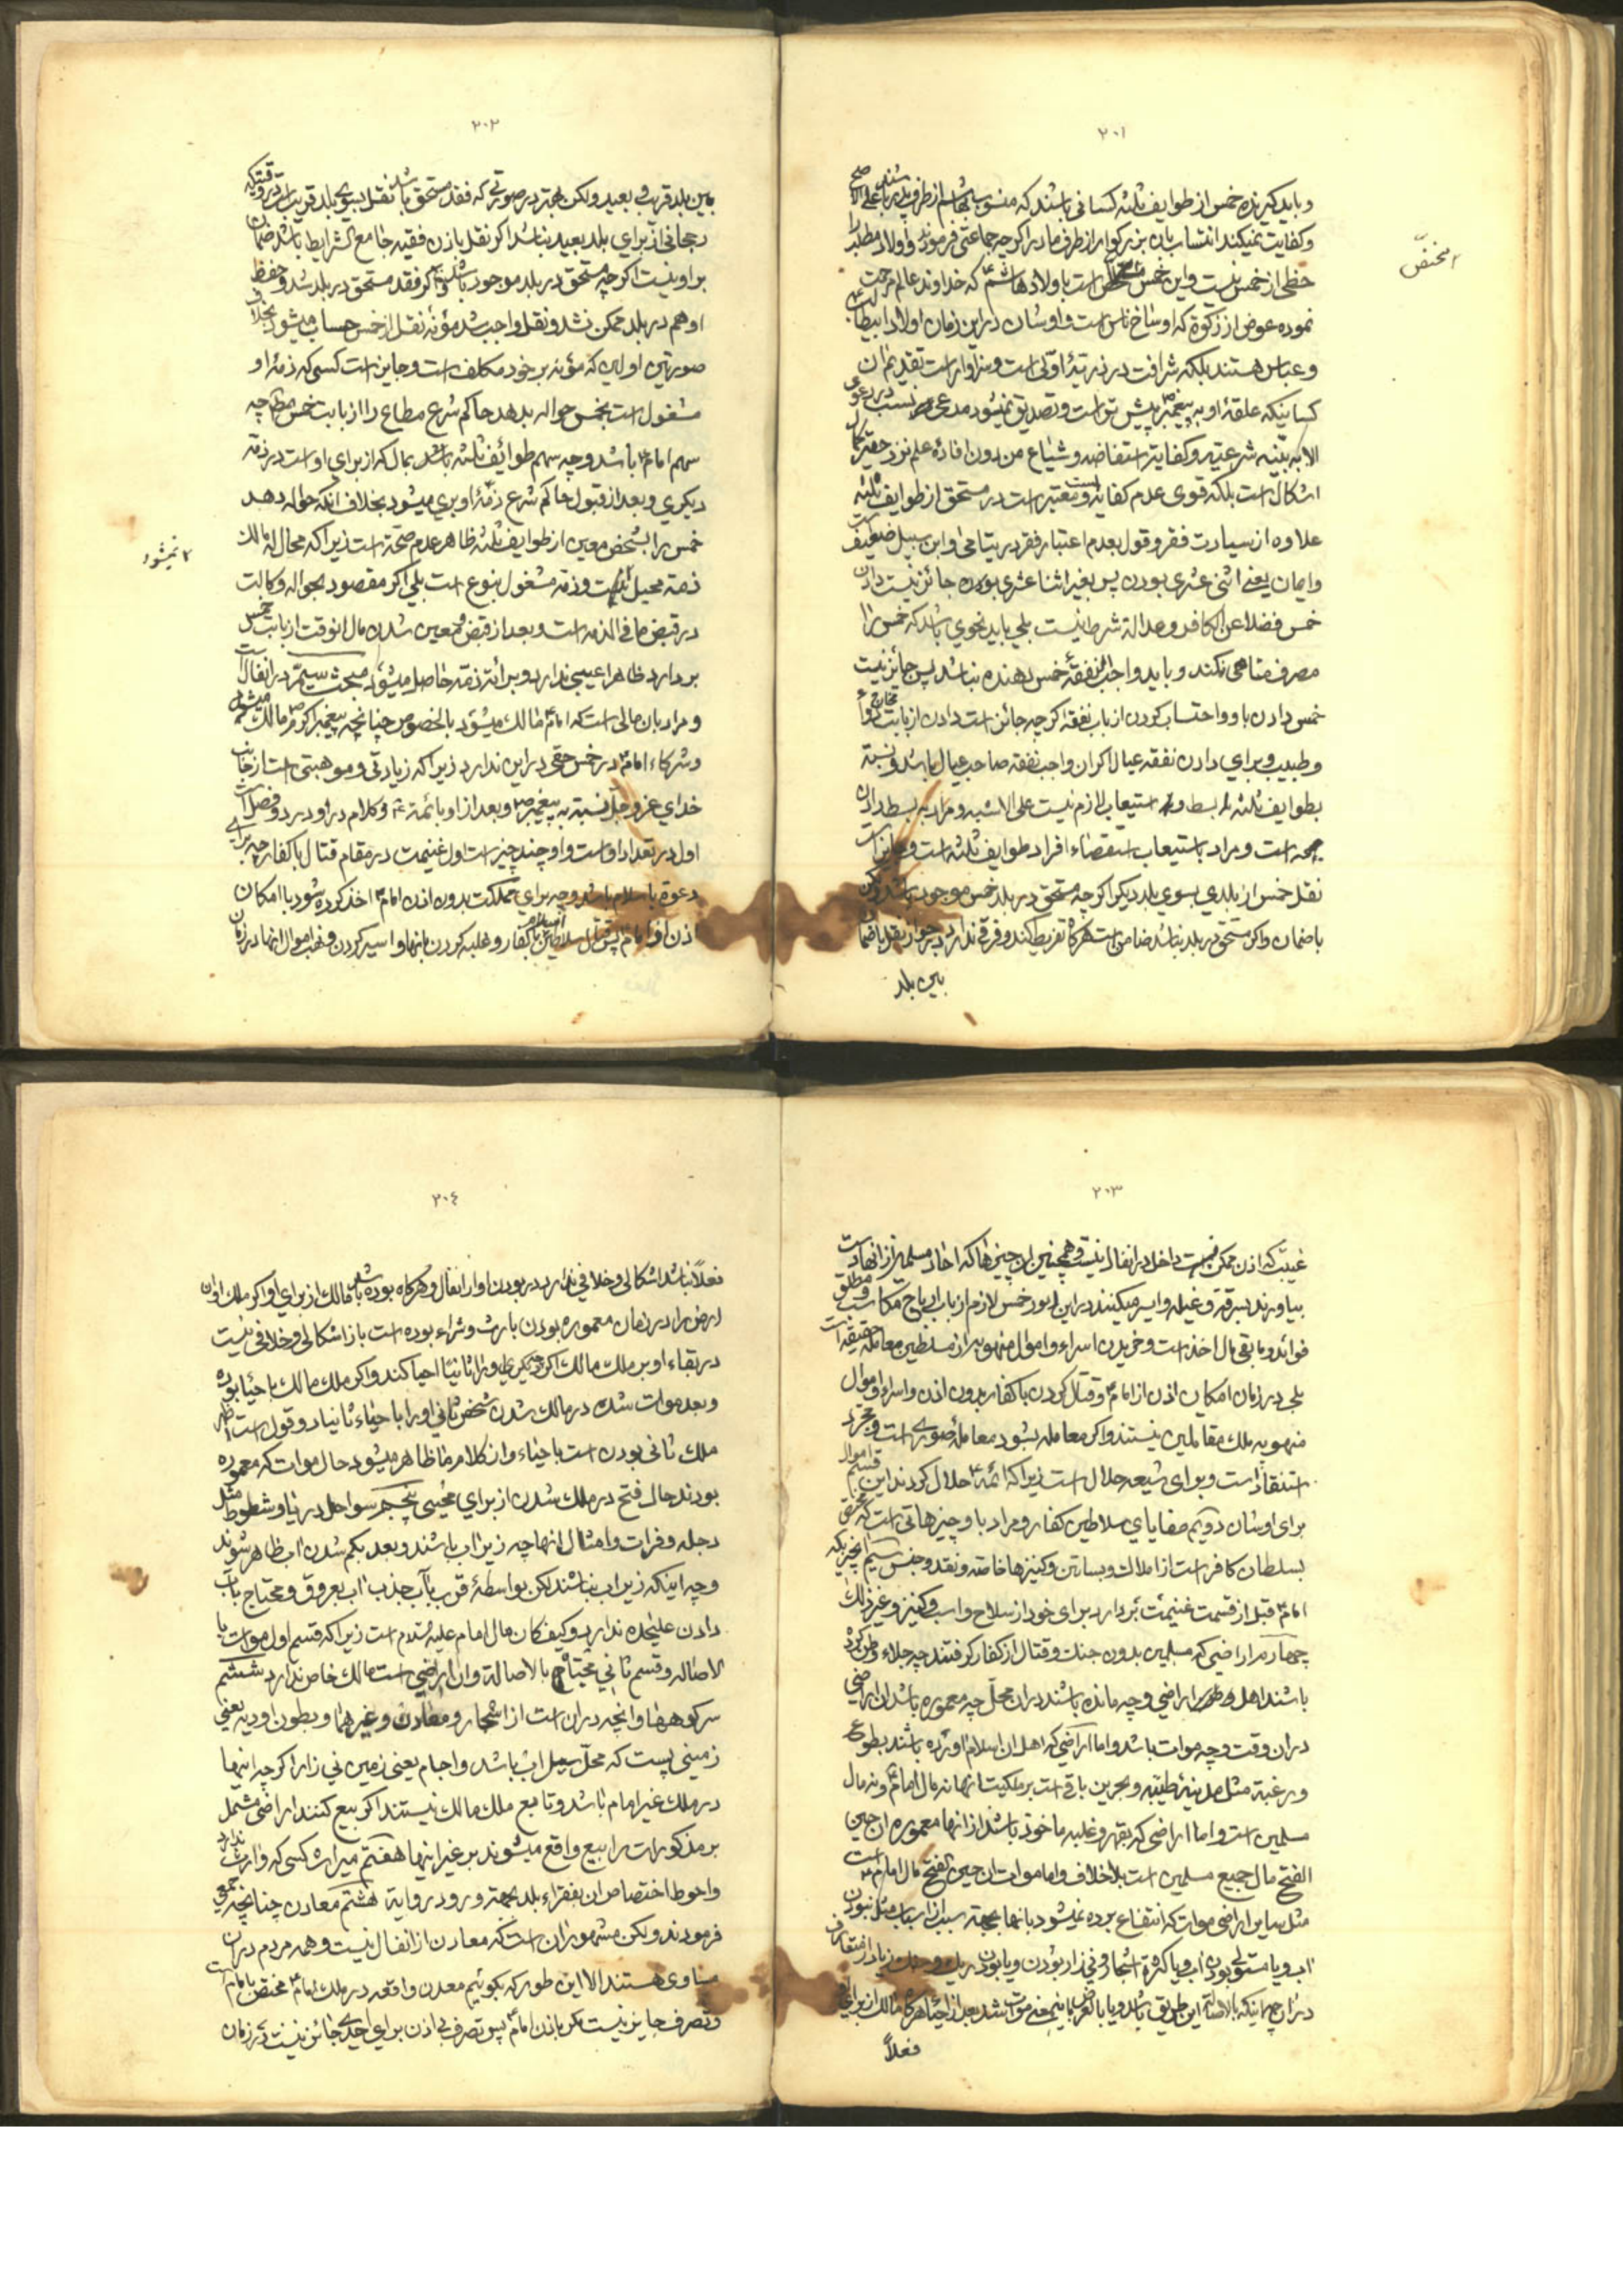 ٢٠١
و باید گیرنده خمس از طوایف ثلثه کسانی باشند که منسوب بهاشم از طرف پدر باشند علی الاصح
و کفایت نمیکند انتساب بان بزرکوار از طرف مادر اکرچه جماعتی فرمودند و اولاد مطلب را
حظی از خمس نیست و این خمس مختص است باولاد هاشم که خداوند عالم مرحمت
نموده عوض از زکوة که اوساخ ناس است و اوشان در این زمان اولاد ابیطالب
و عباس هستند بلکه شرافت در ذریه اولی است و سزاوار است تقدیم ان
کسانیکه علقهٔ او به پیغمبر پیش تر است و تصدیق نمیشود مدعی نسب در دعوی
الا به بیّنه شرعیّه و کفایة استفاضه و شیاع من دون افادهٔ علم نزد حقیر محل
اشکال است بلکه قوی عدم کفایة و معتبر است در مستحق از طوایف ثلثه
علاوه از سیادت فقر و قول بعدم اعتبار فقر در یتامی و ابن سبیل ضعیف است
و ایمان یعنی اثنی عشری بودن پس بغیر اثنا عشری بوده جائز نیست دادن
خمس فضلا عن الکافر و عدالة شرط نیست بلی باید نحوی باشد که خمس را
مصرف مناهی نکند و باید واجب النفقهٔ خمس دهنده نباشد پس جائز نیست
خمس دادن باو و احتساب کردن از باب نفقه اکرچه جائز است دادن از بابت مخارج دوا
و طبیب و برای دادن نفقه عیال اکر ان واجب نفقه صاحب عیال باشد و نسبة
بطوایف ثلثه بسط و استیعاب لازم نیست علی الاشبه و مراد به بسط دادن
بهمه است و مراد باستیعاب استقصاء افراد طوایف ثلثه است و جایز است
نقل خمس از بلدی بسوی بلد دیکر اکرچه مستحق در بلد خمس موجود باشد ولکن
باضمان و اکر مستحق در بلد نباشد ضامن است هرکاه تفریط کند و فرقی ندارد در جواز نقل باضمان
بین بلد
مختصّ
٢٠٢
بین بلد قریب و بعید ولکن بهتر در صورتیکه فقد مستحق باشد نقل بسوی بلد قریب است در وقتیکه
رجحانی از برای بلد بعید نباشد اکر نقل باذن فقیه جامع الشرایط باشد ضمان
بر او نیست اکرچه مستحق در بلد موجود باشد و اکر فقد مستحق در بلد شد و حفظ
او هم در بلد ممکن نشد و نقل واجب شد مؤنه نقل از خمس حساب میشود بخلاف
صورتین اولین که مؤنه بر خود مکلف است و جایز است کسی که ذمهٔ او
مشغول است بخمس حواله بدهد حاکم شرع مطاع را از بابت خمس چه
سهم امام باشد و چه سهم طوائف ثلثه باشد بمال که از برای او است در ذمه
دیکری و بعد از قبول حاکم شرع ذمهٔ او بری میشود بخلاف انکه حواله دهد
خمس را بشخص معین از طوایف ثلثه ظاهر عدم صحة است زیرا که محال له مالک
ذمه محیل نیست و ذمه مشغول بنوع است بلی اکر مقصود بحواله وکالت
در قبض ما فی الذمه است و بعد از قبض و معین شدن مال انوقت از بابت خمس
بردارد ظاهرا عیبی ندارد و برائة ذمه حاصل میشود مبحث سیّم در انفال است
و مراد بان مالی است که امام مالک میشود بالخصوص چنانچه پیغمبر اکرم مالک میشود
و شرکاء امام در خمس حقی در این ندارد زیرا که زیادتی و موهبتی است از جانب
خدای عز و جل نسبة به پیغمبر و بعد از او بائمه و کلام در او در دو فصل است
اول در تعداد اوست و او چند چیز است اول غنیمت در مقام قتال با کفار چه برای
دعوة باسلام باشد و چه برای مملکت بدون اذن امام اخذ کرده شود با امکان
اذن از امام پس قتل سلاطین اسلام با کفار و غلبه کردن بانها و اسیر کردن و نهب اموال انها در زمان
نمیشود
٢٠٣
غیبت که اذن ممکن نیست داخل در انفال نیست و همچنین ان چیزها که احاد مسلمین از انها
بیاورند بسرقة و غیله و اسیر میکنند در این امور خمس لازم از باب ارباح مکاسب و مطلق
فوائد و باقی مال اخذ است و خریدن اسراء و اموال منهوبه از سلطین معامله حقیقة است
بلی در زمان امکان اذن از امام و قتال کردن با کفار بدون اذن و اسراء و اموال
منهوبه ملک مقاتلین نیستند و اکر معامله بشود معاملهٔ صوری است و مجرد
استنقاذ است و برای شیعه حلال است زیرا که ائمه حلال کردند این قسم اموال
برای اوشان دویّم صفایای سلاطین کفار و مراد باو چیزهائی است که مختص
بسلطان کافر است از املاک و بساتین و کنیزها خاصه و نقد و جنس سیّم انچیزیکه
امام قبل از قسمت غنیمت بردارد برای خود از سلاح و اسب و کنیز و غیر ذلک
چهارم اراضی که مسلمین بدون جنک و قتال از کفار کرفتند چه جلاء وطن کرده
باشند اهل و طور اراضی و چه مانده باشند در ان محلّ چه معموره باشد ان اراضی
در ان وقت و چه موات باشد و اما اراضی که اهل ان اسلام اورده باشند بطوع
و رغبة مثل مدینهٔ طیّبه و بحرین باقی است بر ملکیت انها نه مال امام و نه مال
مسلمین است و اما اراضی که بقهر و غلبه ماخوذ باشد از انها معموره ان حین
الفتح مال جمیع مسلمین است بلا خلاف و اما موات ان حین الفتح مال امام است
مثل سایر اراضی موات که انتفاع برده نمیشود بانها بجهة سبب از اسباب مثل نبودن
اب و یا مستولی بودن اب و یا کثرة اشجار و نی زار بودن و یا بودن ریک و سنک زیاد از متعارف
در ان چه اینکه بالاصالة این طریق باشد و یا بالعرض باینمعنی موات شد بعد از احیا هرکاه مالک از برای او
فعلاً
٢٠٤
فعلاً نباشد اشکالی و خلافی ندارد در بودن او از انفال و هرکاه بوده باشد مالک از برای او اکر ملک او ان
ارض را در زمان معموره بودن بارث و شراء بوده است باز اشکالی و خلافی نیست
در بقاء او بر ملک مالک اکرچه دیکری او را ثانیاً احیا کند و اکر ملک مالک باحیا بوده
و بعد موات شده در مالک شدن شخص ثانی او را باحیاء ثانیا دو قول است اظهر
ملک ثانی بودن است باحیاء و از کلام ما ظاهر میشود حال موات که معموره
بودند حال فتح در ملک شدن از برای محیی پنجم سواحل دریا و شطوط مثل
دجله و فرات و امثال انها چه زیر اب باشند و بعد بکم شدن اب ظاهر شوند
و چه اینکه زیر اب نباشند لکن بواسطهٔ قرب بآب جذب اب بعروق و محتاج بآب
دادن علیحده ندارد و کیف کان مال امام علیه السلام است زیرا که قسم اول موات با
لاصاله و قسم ثانی محیاة بالاصالة و ان اراضی است مالک خاص ندارد ششم
سر کوهها و انچه در ان است از اشجار و معادن و غیر هما و بطون اودیه یعنی
زمینی پست که محلّ سیل اب باشد و اجام یعنی زمین نی زار اکرچه اینها
در ملک غیر امام باشد و تابع ملک مالک نیستند اکر بیع کنند اراضی مشتمل
بر مذکورات را بیع واقع میشوند بر غیر اینها هفتم میراث کسی که وارث ندارد
و احوط اختصاص ان بفقراء بلد بجهة ورود روایة هشتم معادن چنانچه جمعی
فرمودند ولکن مشهور ان است که معادن از انفال نیست و همه مردم در ان
مساوی هستند الا این طور که بکوئیم معدن واقعه در ملک امام مختص بامام است
و تصرف جایز نیست مکر باذن امام پس تصرف بی اذن برای احدی جائز نیست در زمان